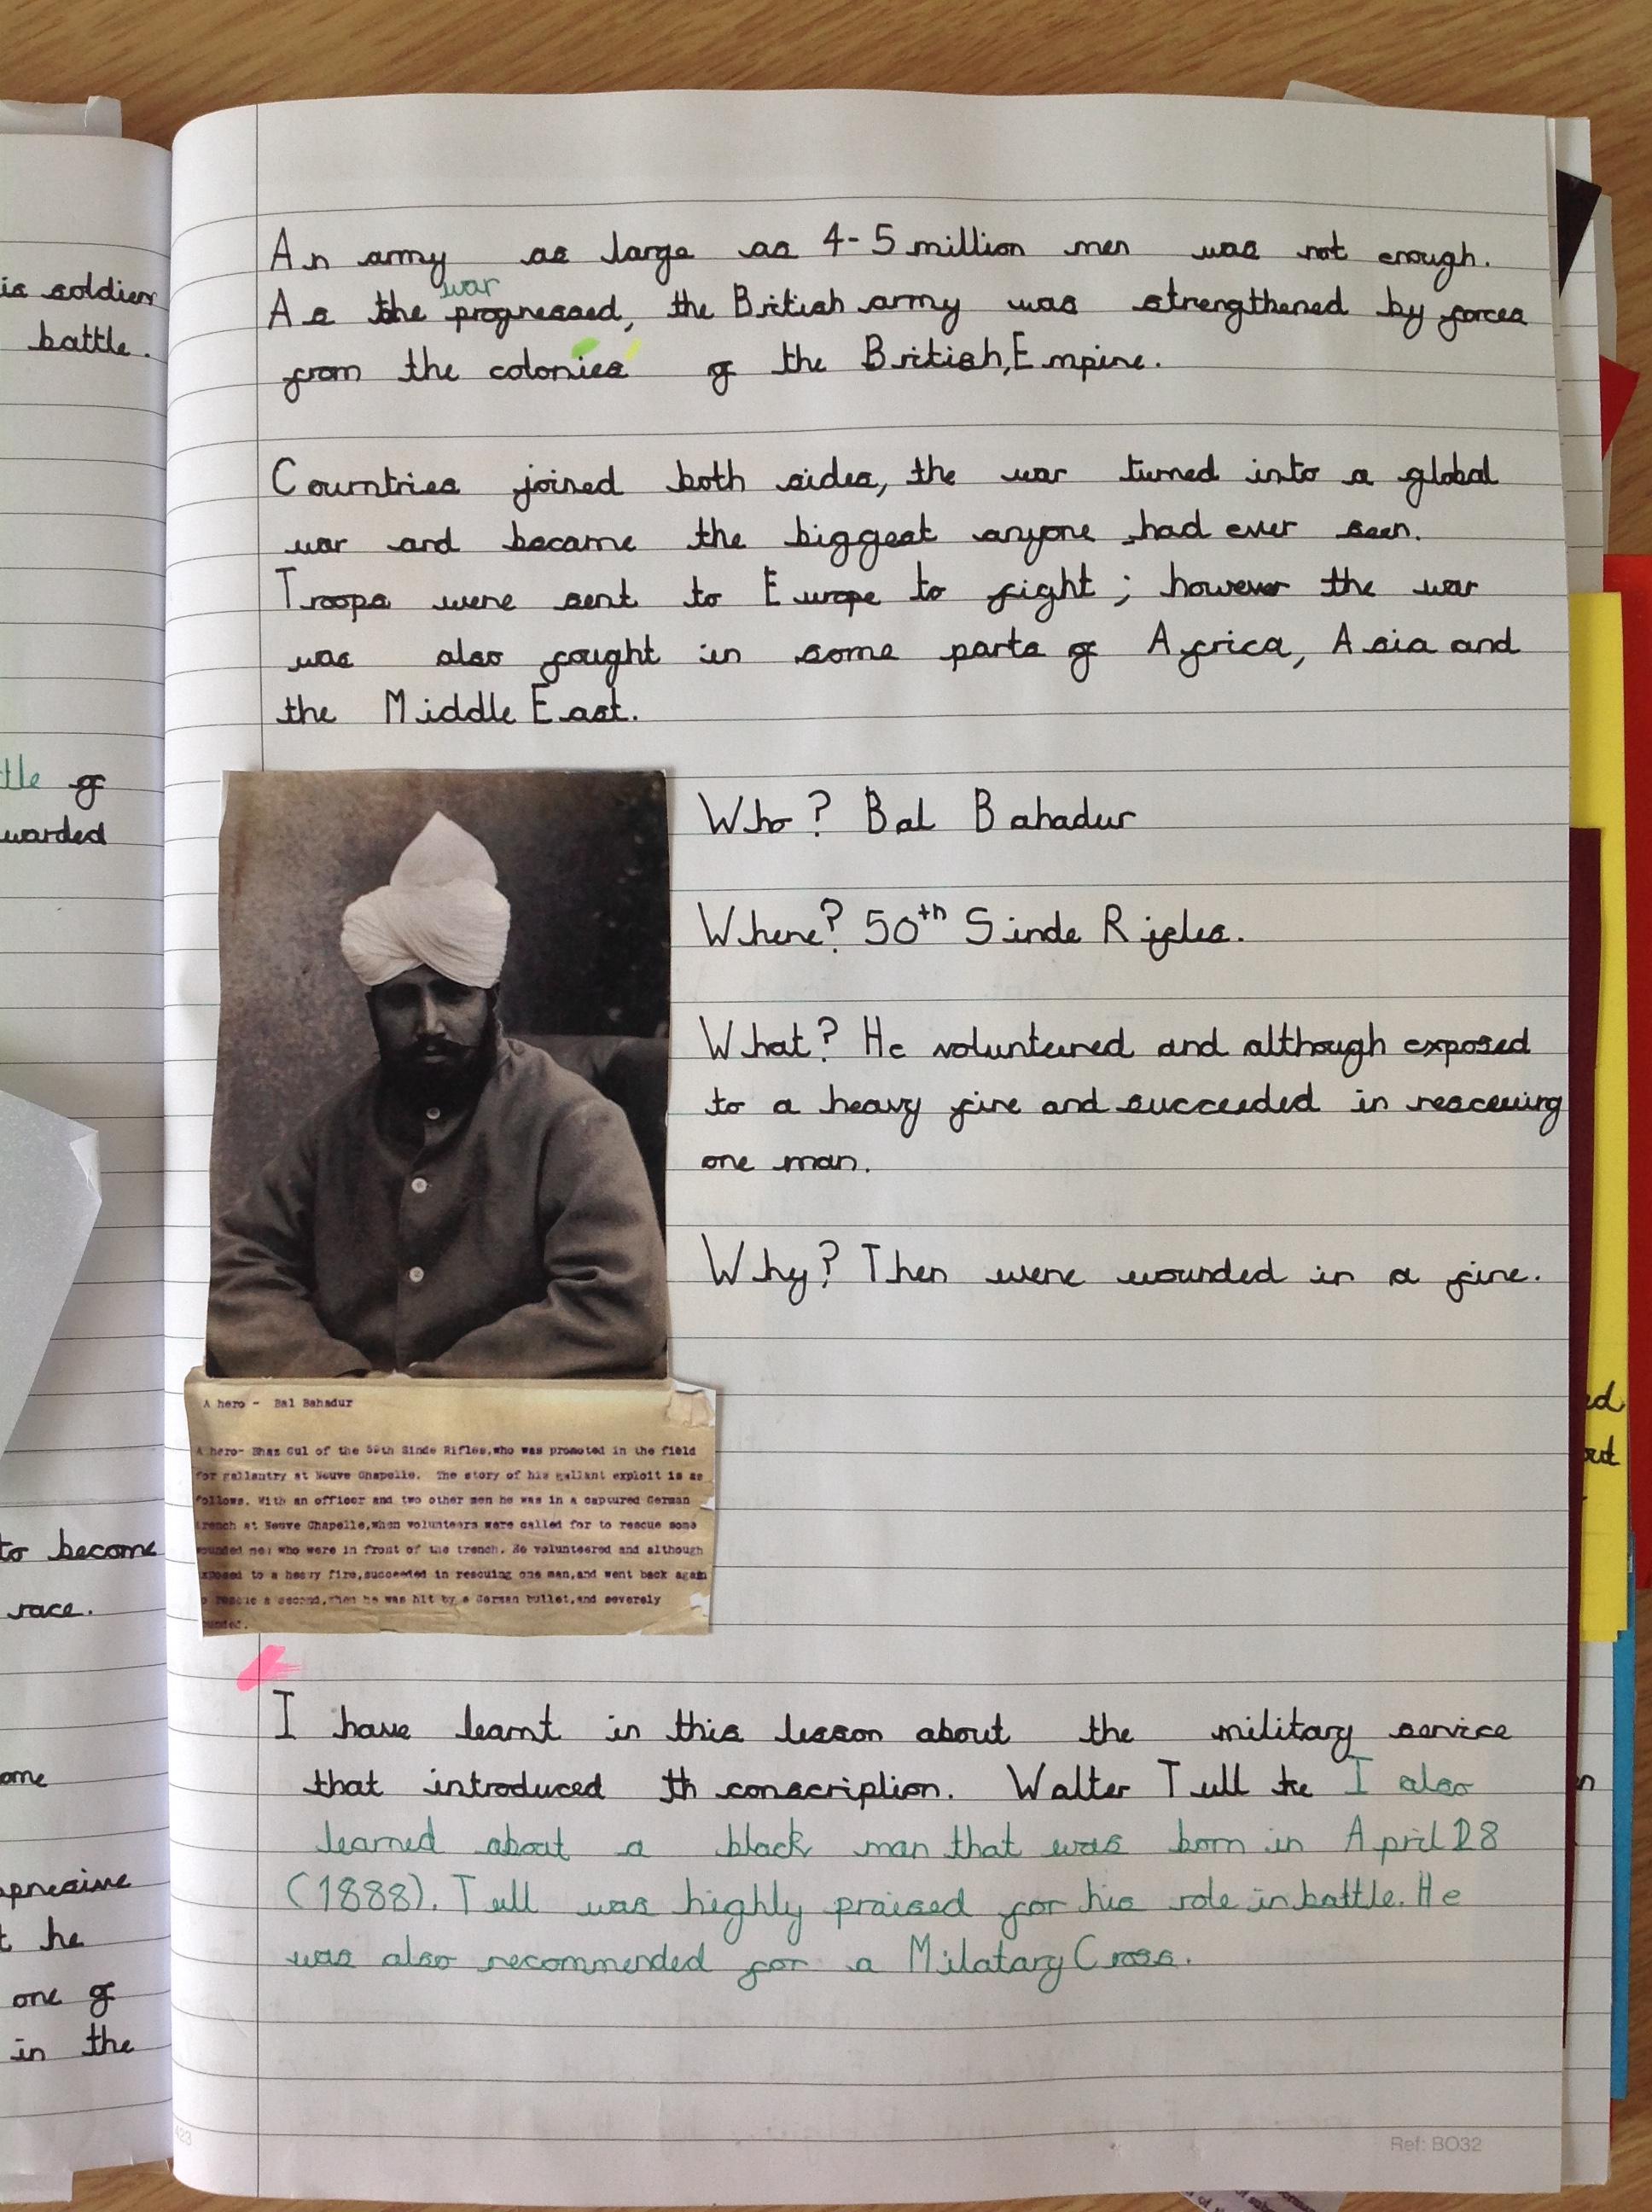 is soldier
battle.
tle of
warded
to become
race.
ome
pressive
t he
one of
in the
An army as large as 4-5 million men was not enough.
war
As the progressed, the British army was strengthened by forces
from the colonies of the British, Empire.
Countries joined both sides, the war turned into a global
war and became the biggest anyone had ever seen.
Troops were sent to Europe to fight; however the war
was also fought in some parts of Africa, Asia and
the Middle East.
Who? Bal Bahadur
Where? 50th Sinde Rifles.
What? He volunteered and although exposed
to a heavy fire and succeeded in resceuing
one man.
Why? Then were wounded in a fire.
A hero - Bal Bahadur
A hero- Bhas Gul of the 59th Sinde Rifles,who was promoted in the field
for gallantry at Neuve Chapelle. The story of his gallant exploit is as
follows. With an officer and two other men he was in a captured German
trench at Neuve Chapelle,when volunteers were called for to rescue some
wounded me: who were in front of the trench. He volunteered and although
exposed to a heavy fire,succeeded in rescuing one man,and went back again
o rescue a second,when he was hit by a German bullet,and severely
ounded.
I have learnt in this lesson about the military service
that introduced th conscription. Walter Tull he I also
learned about a black man that was born in April 28
(1888). Tull was highly praised for his role in battle. He
was also recommended for a Milatary Cross.
423
Ref: BO32
ed
out
n